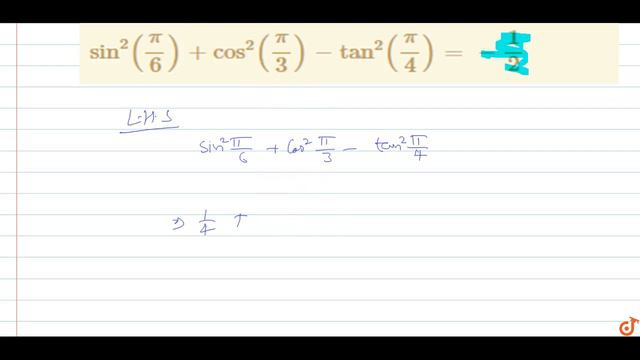 sin²(π/6) + cos²(π/3) − tan²(π/4) = −1/2
L.H.S
sin² π/6 + cos² π/3 − tan² π/4
⇒ 1/4 +